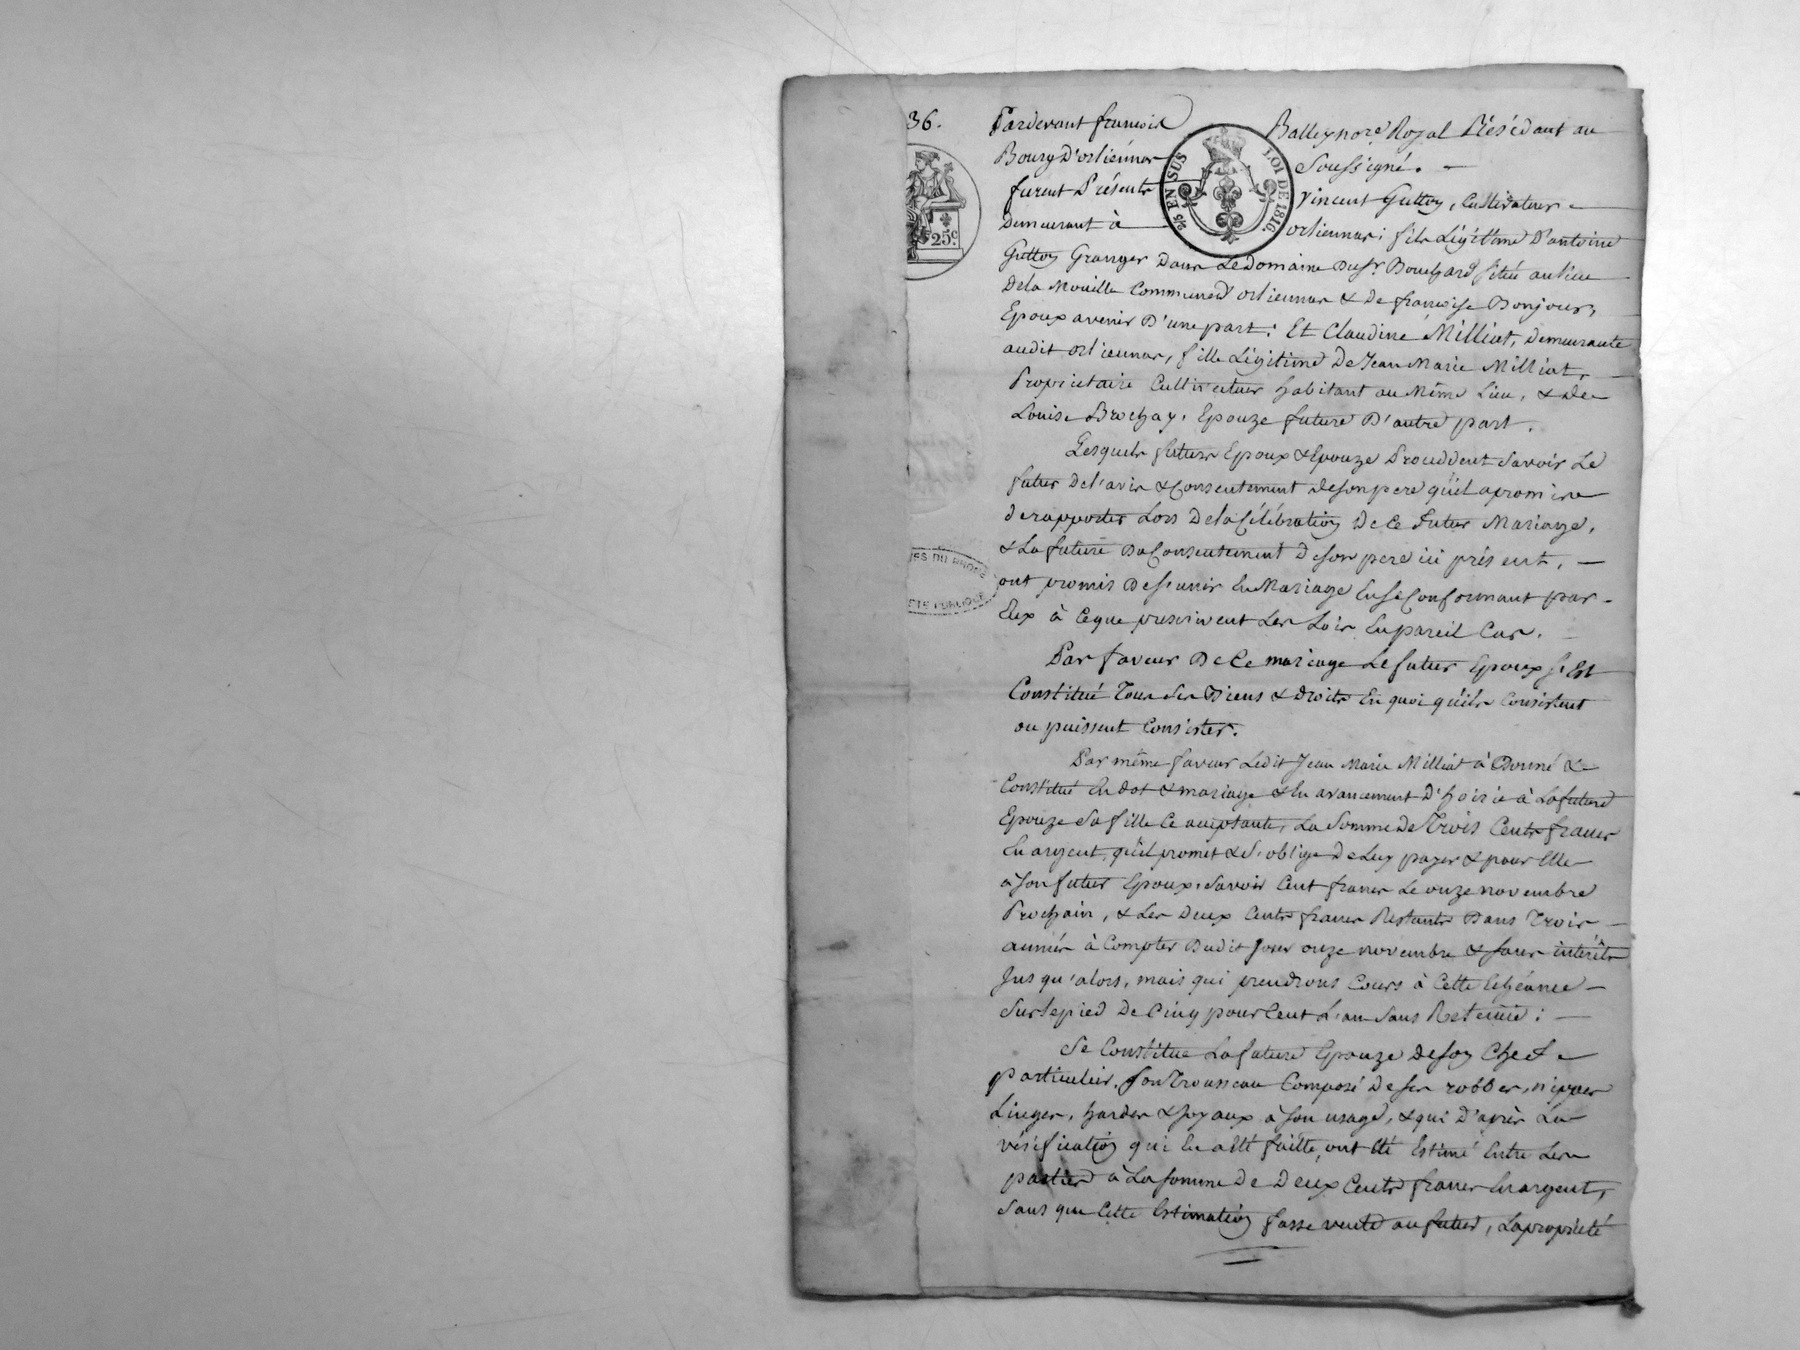 36.
Pardevant francois Balley no.re Royal Résédant au
Bourg D'orliennas Soussigné.
furent Présents Vincent Guttoy, Cultivateur
Demeurant à orliennas; fils Légitime D'antoine
Guttoy Granger Dans Le Domaine Du Sr. Bouchard Situé au lieu
De la Mouille Commune D'orliennas & De françoise Bonjour,
Epoux avenir D'une part; Et Claudine Milliat, Demeurante
audit orliennas, fille Légitime De Jean Marie Milliat,
Proprietaire Cultivateur habitant au Même Lieu, & de
Louise Brochay, Epouze future D'autre part.
Lesquels futurs Epoux & Epouze Procèddent Savoir Le
futur De l'avis & Consentement de son pere qu'il a promis
de rapporter Lors De la Célébration De Ce futur Mariage,
& La future Du Consentement De son pere ici présent,
ont promis De s'unir En Mariage En se Conformant par
Eux à Ce que prescrivent Les Loix En pareil Cas.
Par faveur De Ce mariage Le futur Epoux s'Est
Constitué Tous Ses Biens & Droits En quoi qu'ils Consistent
ou puissent Consister.
Par même faveur Ledit Jean Marie Milliat à Donné &
Constitué En dot & mariage & En avancement D'hoirie à La future
Epouze Sa fille Ce acceptante, La Somme De Trois Cents francs
En argent, qu'il promet & S'oblige De Luy payer & pour Elle
à Son futur Epoux, Savoir Cent francs Le onze novembre
Prochain, & Les Deux Cents francs Restants Dans Trois
années à Compter Dudit Jour onze novembre & sans intérêts
Jusqu'alors, mais qui prendrons Cours à Cette Echéance
Sur le pied De Cinq pour Cent L'an Sans Retenue;
Se Constitue La future Epouze De Son Chef
particulier, Son Trousseau Composé De ses robbes, nippes
Linges, hardes & Joyaux à Son usage, & qui D'après La
vérification qui En a Eté faitte, ont Eté Estimé Entre Les
parties à La Somme De Deux Cents francs En argent,
Sans que Cette Estimation fasse vente au futur, La propriété
EN SUS
LOI DE 1816
25c.
ES DU RHONE